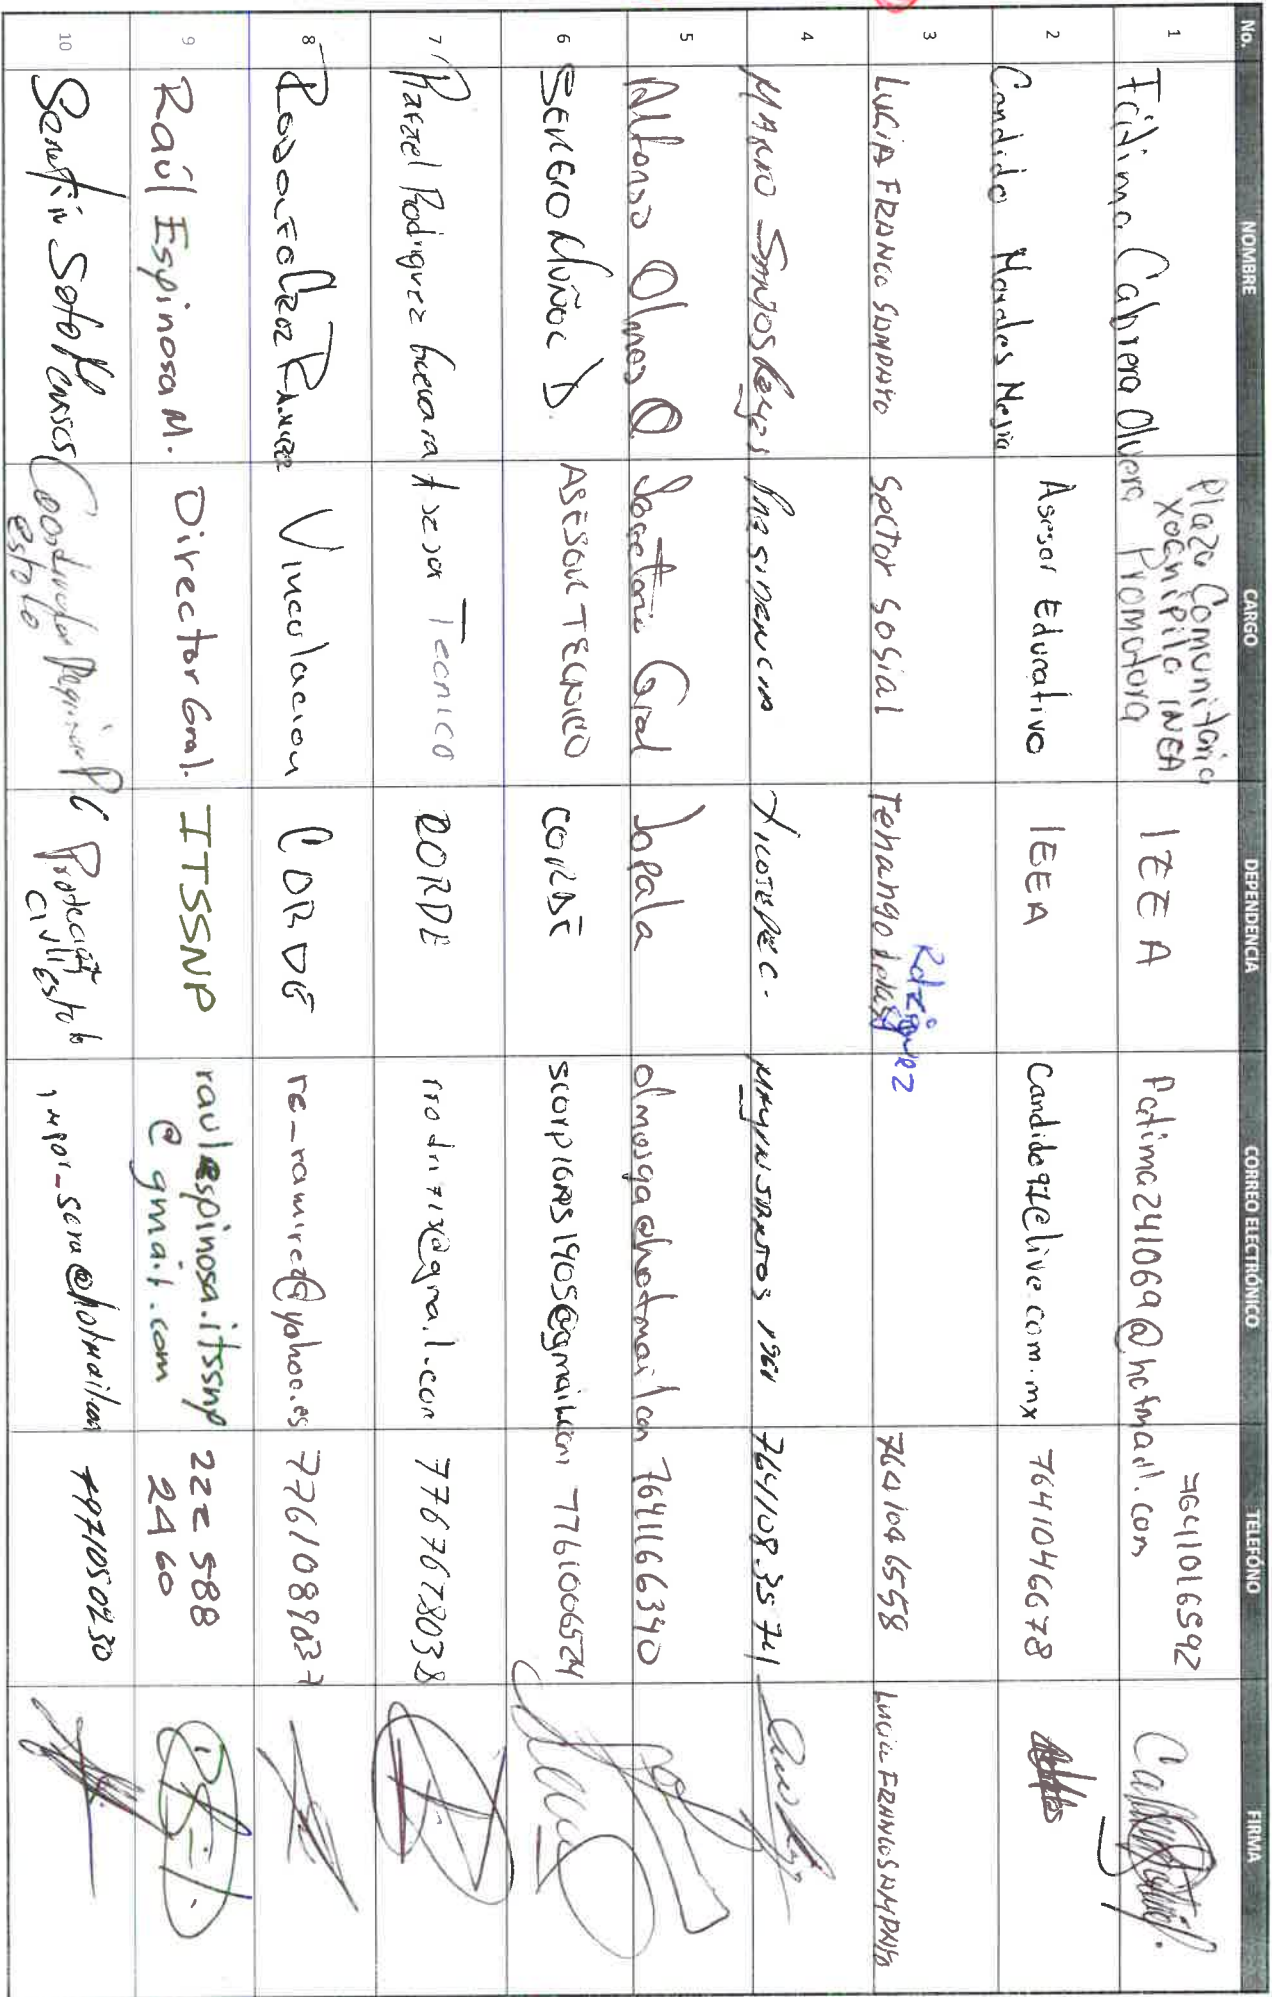 No. NOMBRE CARGO DEPENDENCIA CORREO ELECTRÓNICO TELEFÓNO FIRMA
1 Fátima Cabrera Olvera Plaza Comunitaria Xochipilo INEA Promotora IEEA Fatima241069@hotmail.com 7641016592
2 Candido Morales Mejia Asesor Educativo IEEA Candido97@live.com.mx 7641046678
3 LUCIA FRANCO SAMPAYO Sector Sosial Tenango de las Rdziguez 7641046558 Lucia FRANCO SAMPAYO
4 MARIO SANTOS Reyes PRESIDENCIA XICOTEPEC. 764108 3571
5 Alfonso Olmos O Secretario Gral Jopala olmosga@hotmail.com 7641166340
6 SERGIO MUÑOZ D. ASESOR TECNICO CORDE scorpions1905@gmail.com 7761006524
7 Rafael Rodriguez Guevara Asesor Tecnico CORDE 7767678038
8 Vinculacion CORDE re_ramirez@yahoo.es 7761089837
9 Raúl Espinosa M. Director Gral. ITSSNP raulespinosa.itssnp
@gmail.com 222 588
2460
10 Serafin Soto Coordinador Regional PC
estado Protección
Civil Estado 7971050230